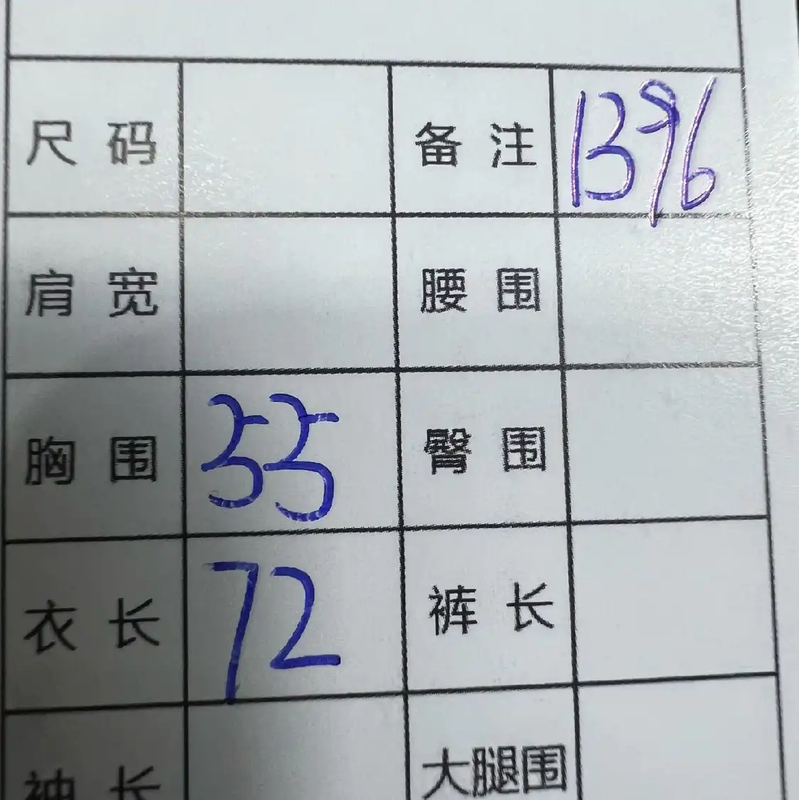 尺码 备注 1396
肩宽 腰围
胸围 55 臀围
衣长 72 裤长
袖长 大腿围